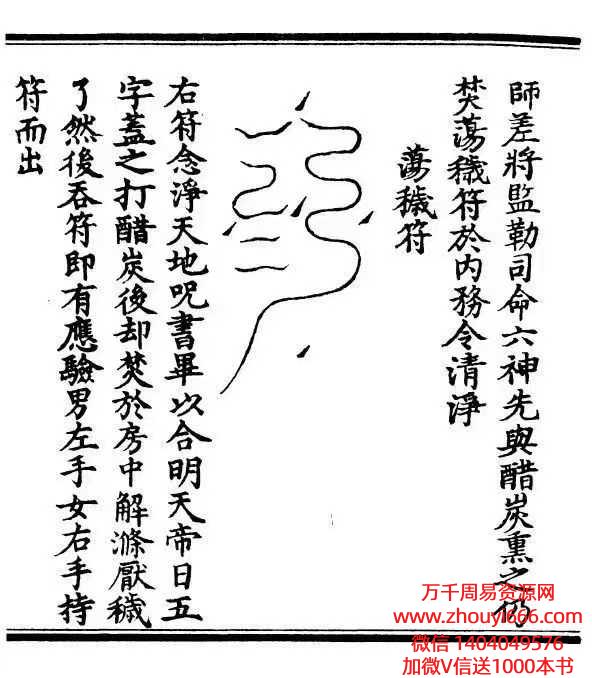 師差將監勒司命六神先與醋炭熏之仍
焚蕩穢符於內務令清淨
蕩穢符
右符念淨天地呪書畢以合明天帝日五
字蓋之打醋炭後却焚於房中解滌厭穢
了然後吞符即有應驗男左手女右手持
符而出
万千周易资源网
www.zhouyi666.com
微信 1404049576
加微V信送1000本书